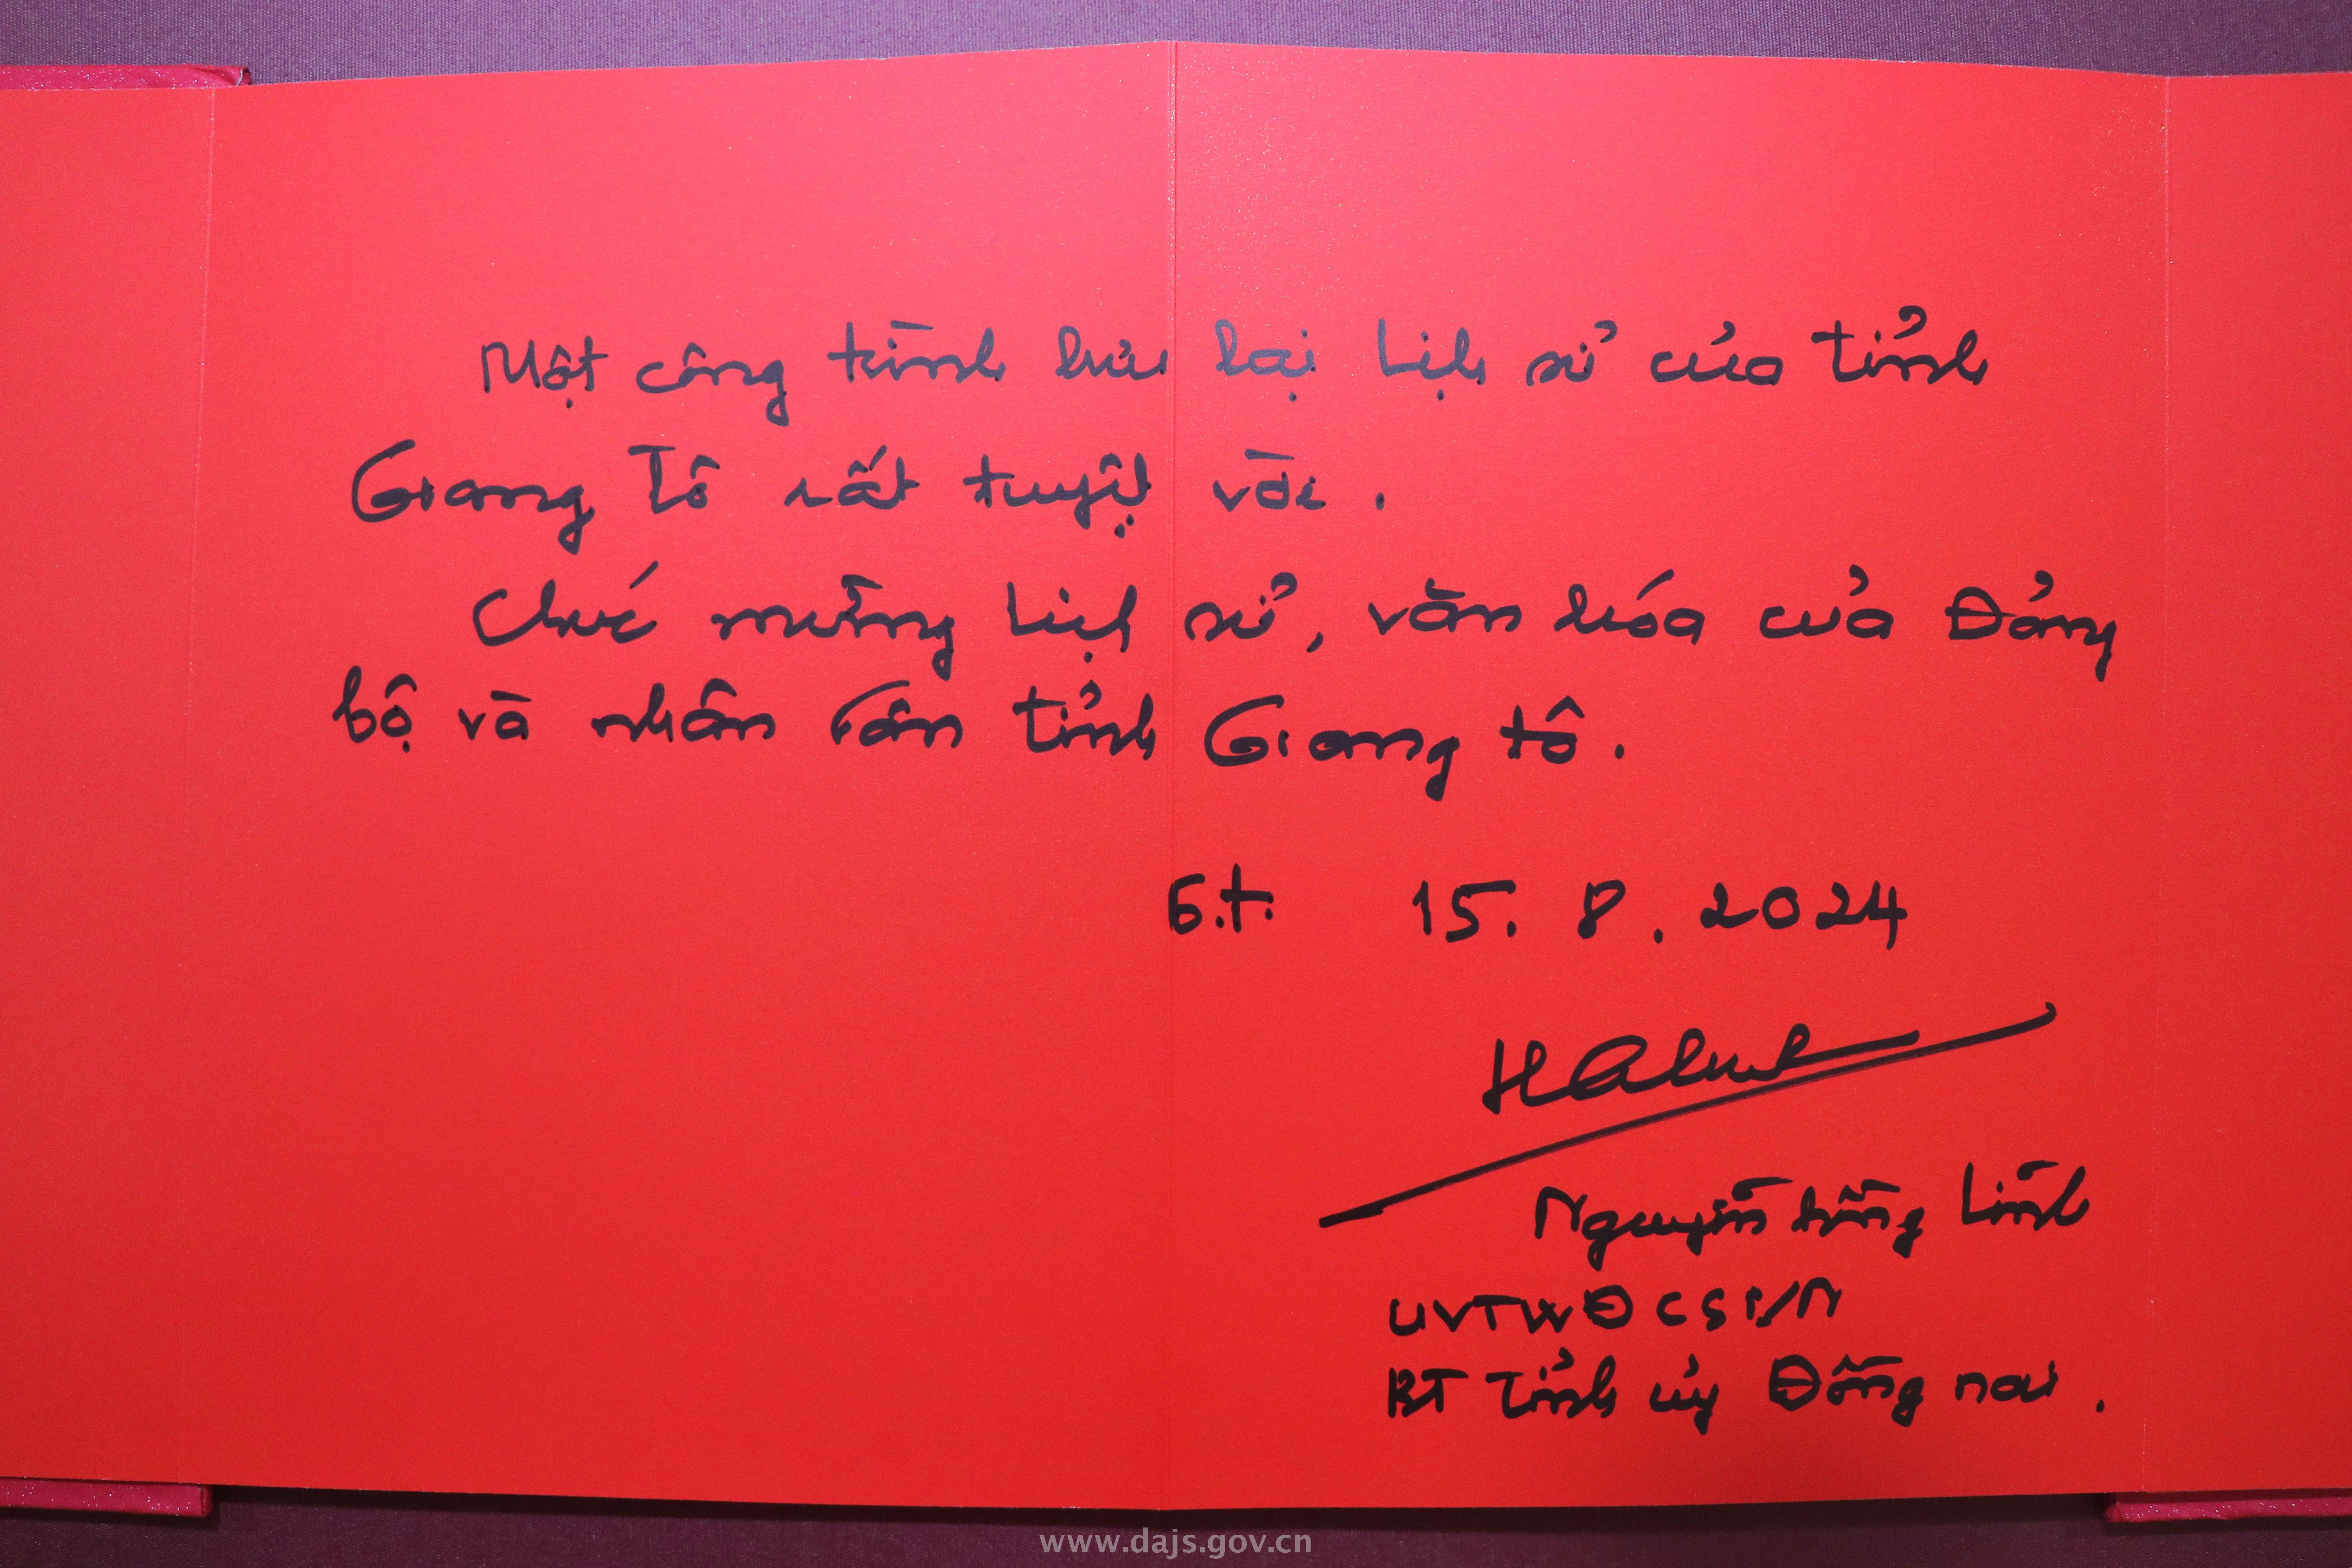 Một công trình lưu lại Lịch sử của tỉnh
Giang Tô rất tuyệt vời.
Chúc mừng Lịch sử, văn hóa của Đảng
bộ và nhân dân tỉnh Giang tô.
G.t. 15.8.2024
Nguyễn Hồng Lĩnh
UVTWĐCSVN
BT Tỉnh ủy Đồng nai.
www.dajs.gov.cn